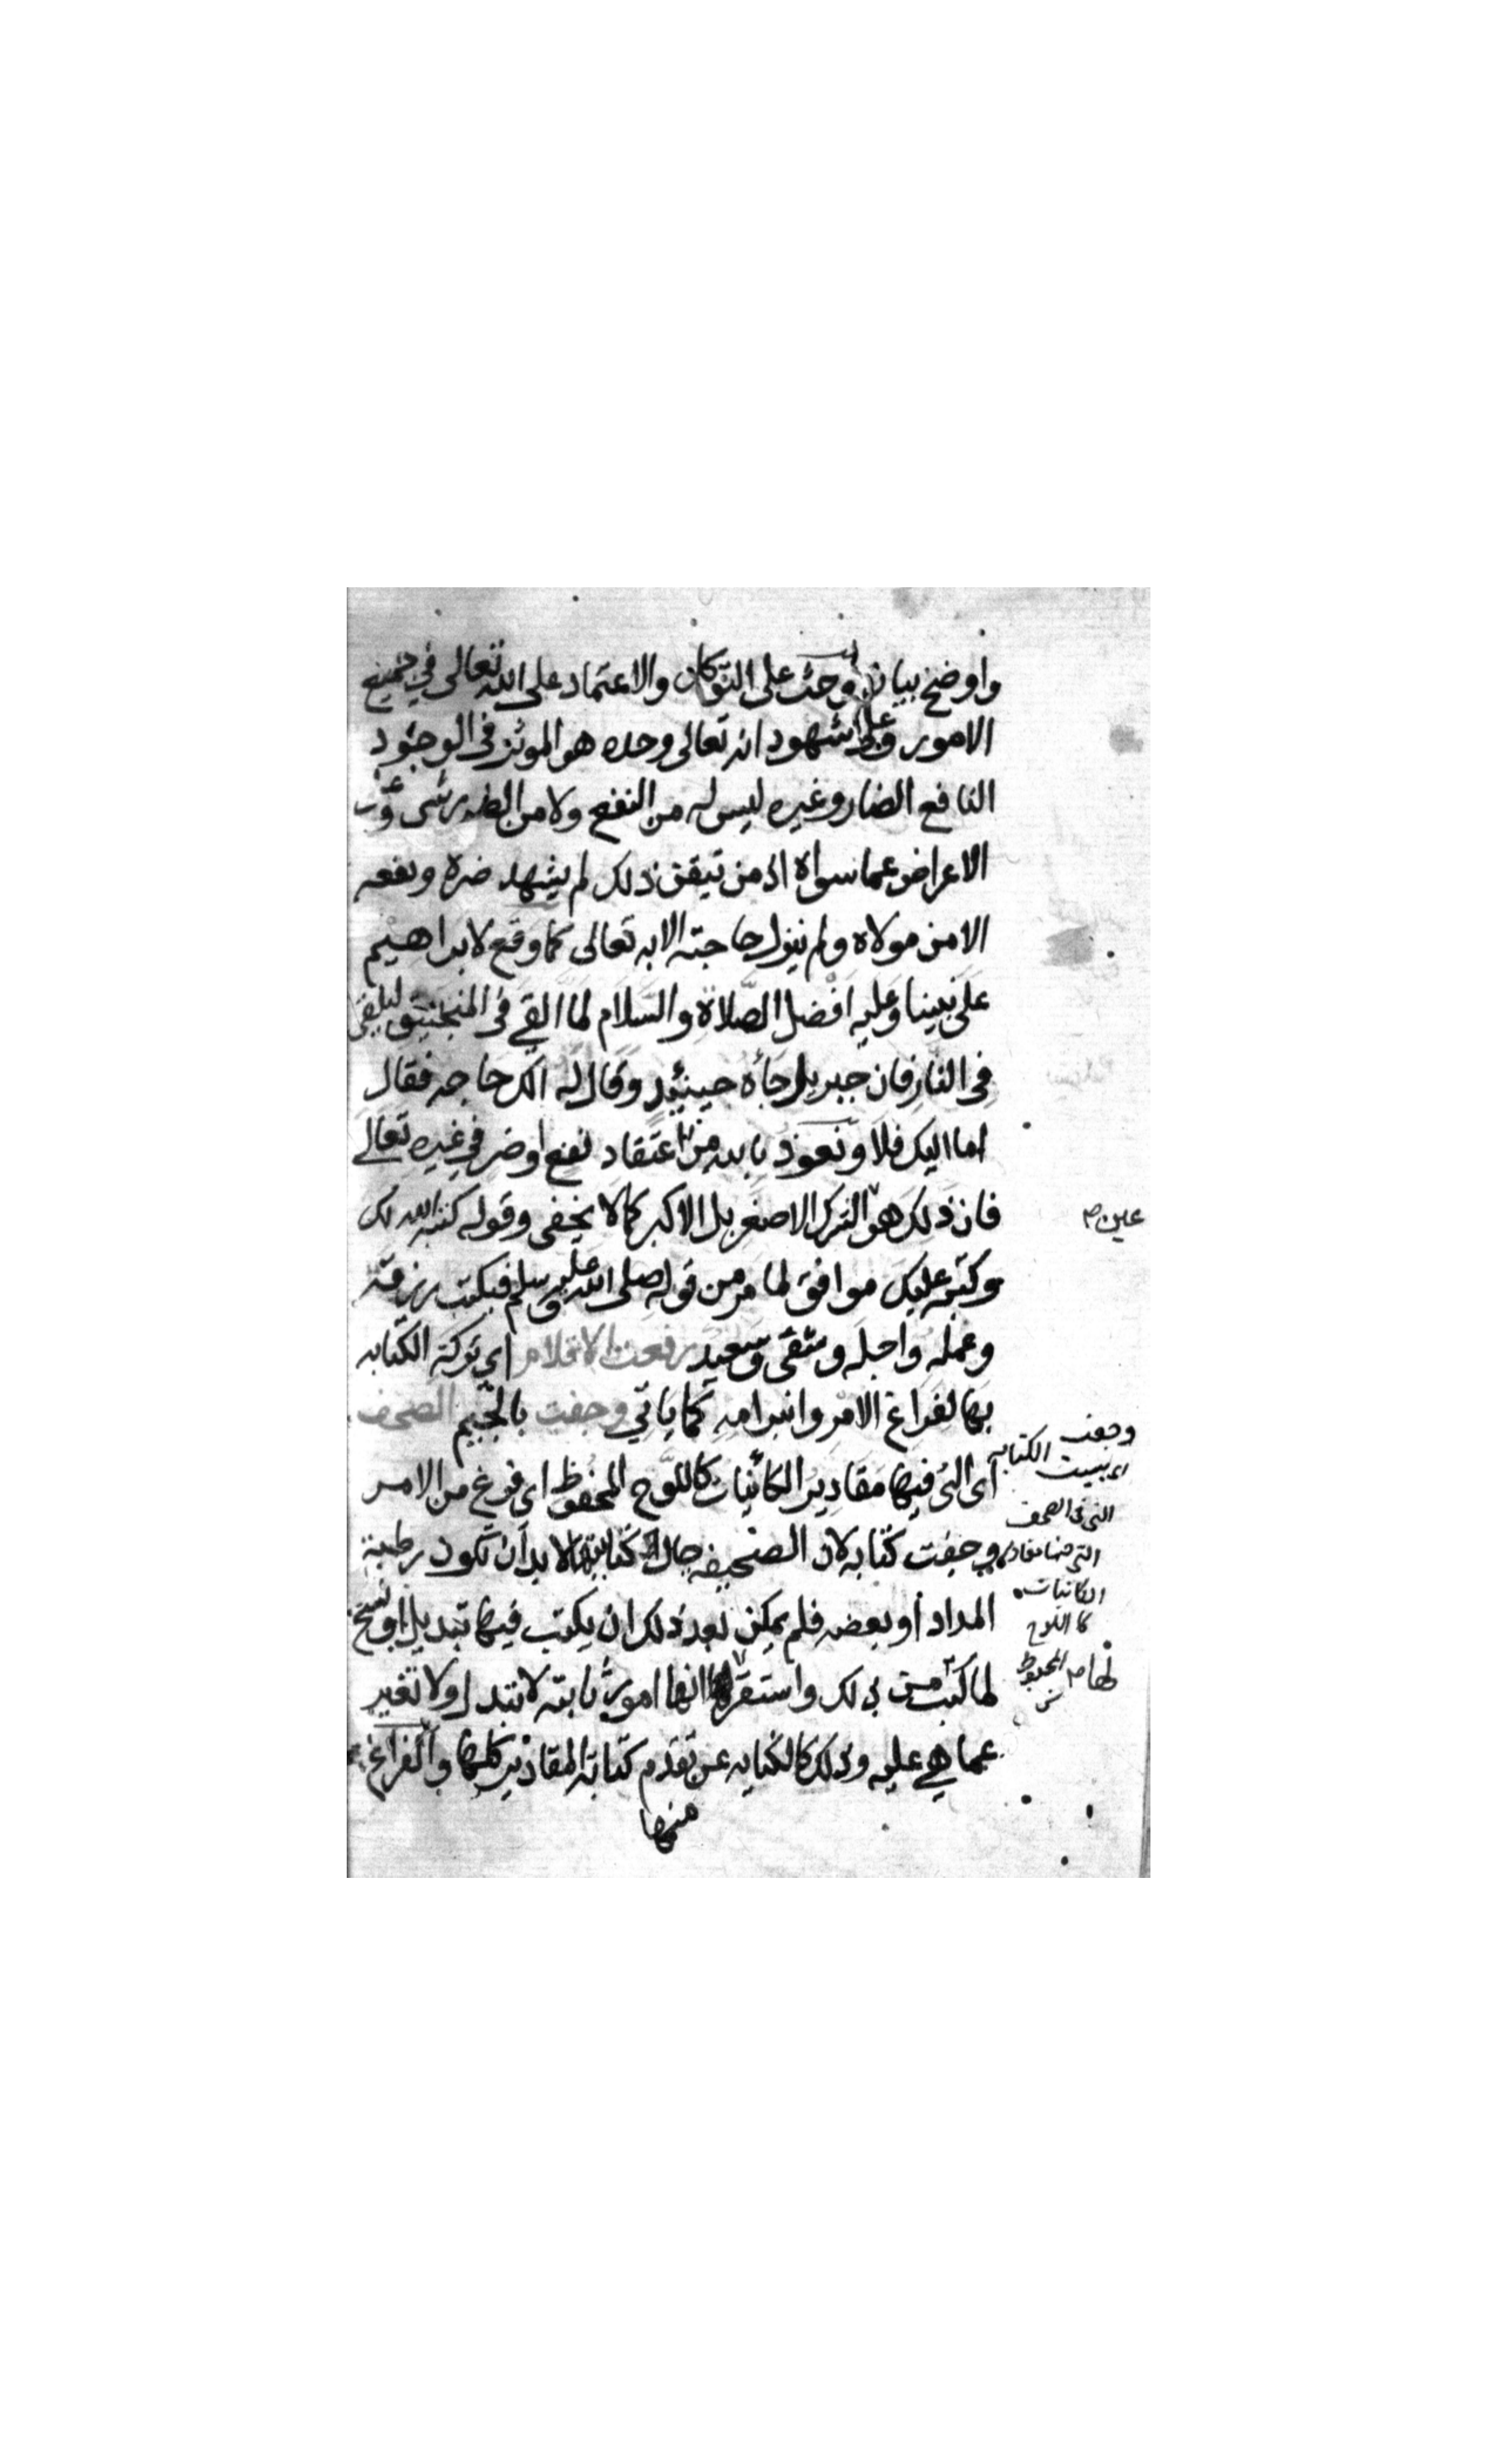 واوضح بيان وحث على التوكل والاعتماد على الله تعالى في جميع
الامور وعلى شهود انه تعالى وحده هو الموثر في الوجود
النافع الضار وغيره ليس له من النفع ولا من الضر شى وعن
الاعراض عما سواه اذ من تيقن ذلك لم يشهد ضره ونفعه
الا من مولاه ولم ينزل حاجته الا به تعالى كما وقع لابراهيم
على نبينا وعليه افضل الصلاة والسلام لما القي في المنجنيق ليلقى
في النار فان جبريل جأه حينئد وقال له الك حاجه فقال
اما اليك فلا ونعوذ بالله من اعتقاد نفع او ضر في غيره تعالى
فان ذلك هو الشرك الاصغر بل الاكبر كما لا يخفى وقوله كتبه الله لك
وكتبه عليك موافق لما مر من قوله صلى الله عليه وسلم فيكتب رزقه
وعمله واجله وشقى وسعيد رفعت الاقلام اي تركة الكتابه
بها لفراغ الامر وانبرامه كما ياتي وجفت بالجيم الصحف
اى التى فيها مقادير الكائنات كاللوح المحفوظ اى فرغ من الامر
وجفت كتابه لان الصحيفه حال كتابتها لا بد ان تكون رطبة
المداد أو بعضه فلم يمكن بعد ذلك ان يكتب فيها تبديل او نسخ
لما كتب من ذلك واستقر انها امور ثابته لا تبدل ولا تغير
عما هي عليه وذلك كالكنايه عن تقدم كتابة المقادير كلها والفراغ
منها
عين
وجفت
اى يبست الكتابه
التى فى الصحف
التى فيها مقادير
الكائنات
كا اللوح
المحفوظ
لها